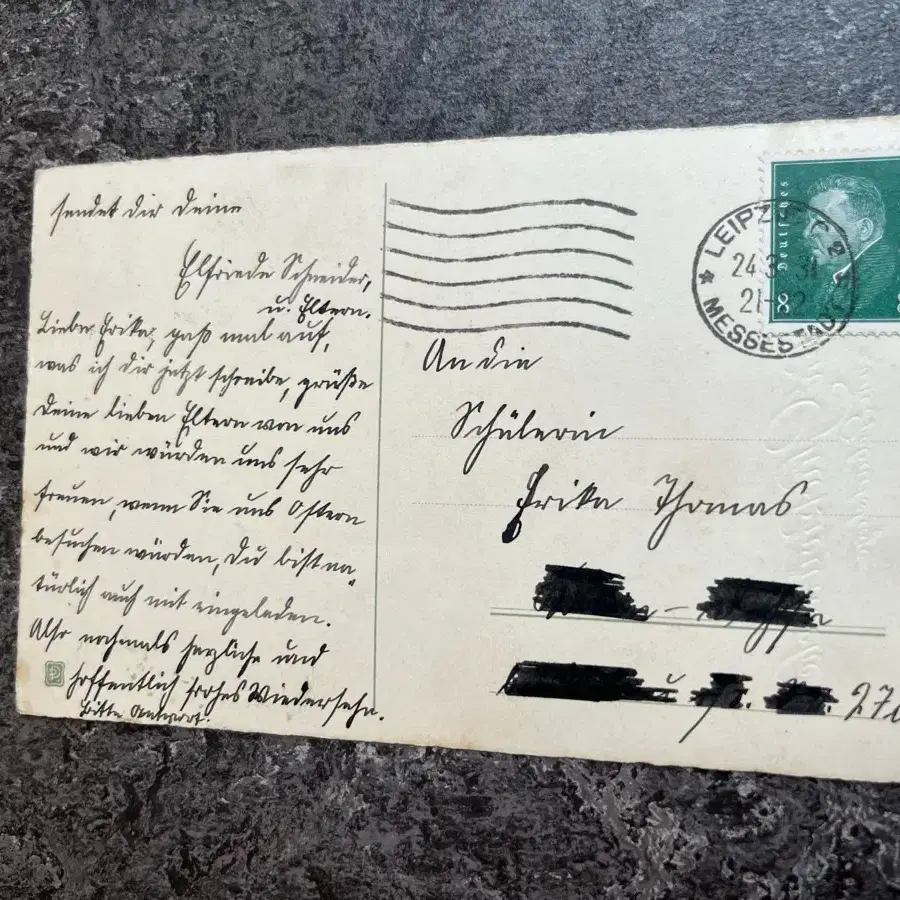 sendet dir Deine
Elfriede Schneider,
u. Eltern.
Liebe Erika, paß mal auf,
was ich dir jetzt schreibe, grüße
Deine lieben Eltern von uns
und wir würden uns sehr
freuen, wenn Sie uns Ostern
besuchen würden, Du bist na„
türlich auch mit eingeladen.
Also nochmals herzliche und
hoffentlich frohes Wiedersehn.
Bitte Antwort.
Deutsches
8 8
LEIPZIG C2
24.3.31
21-22
★ MESSESTADT
An die
Schülerin
Erika Thomas
27